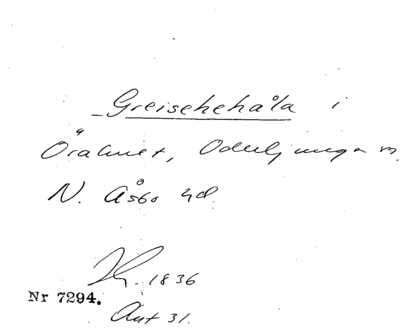 Greisehehåla i
Öralmet, Oderljunga sn,
N. Åsbo hd.
1836
Nr 7294.
Ant 31.